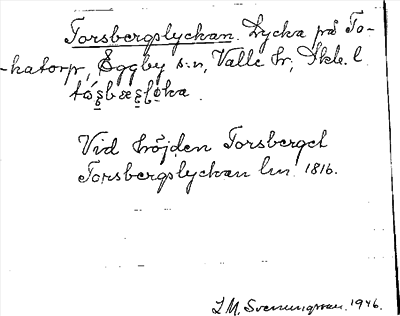 Torsbergslyckan. Lycka på To-
-katorp, Eggby s:n, Valle hr, Skb. l.
Vid höjden Torsberget
Torsbergslyckan lm 1816.
L M. Svenungsson. 1946.